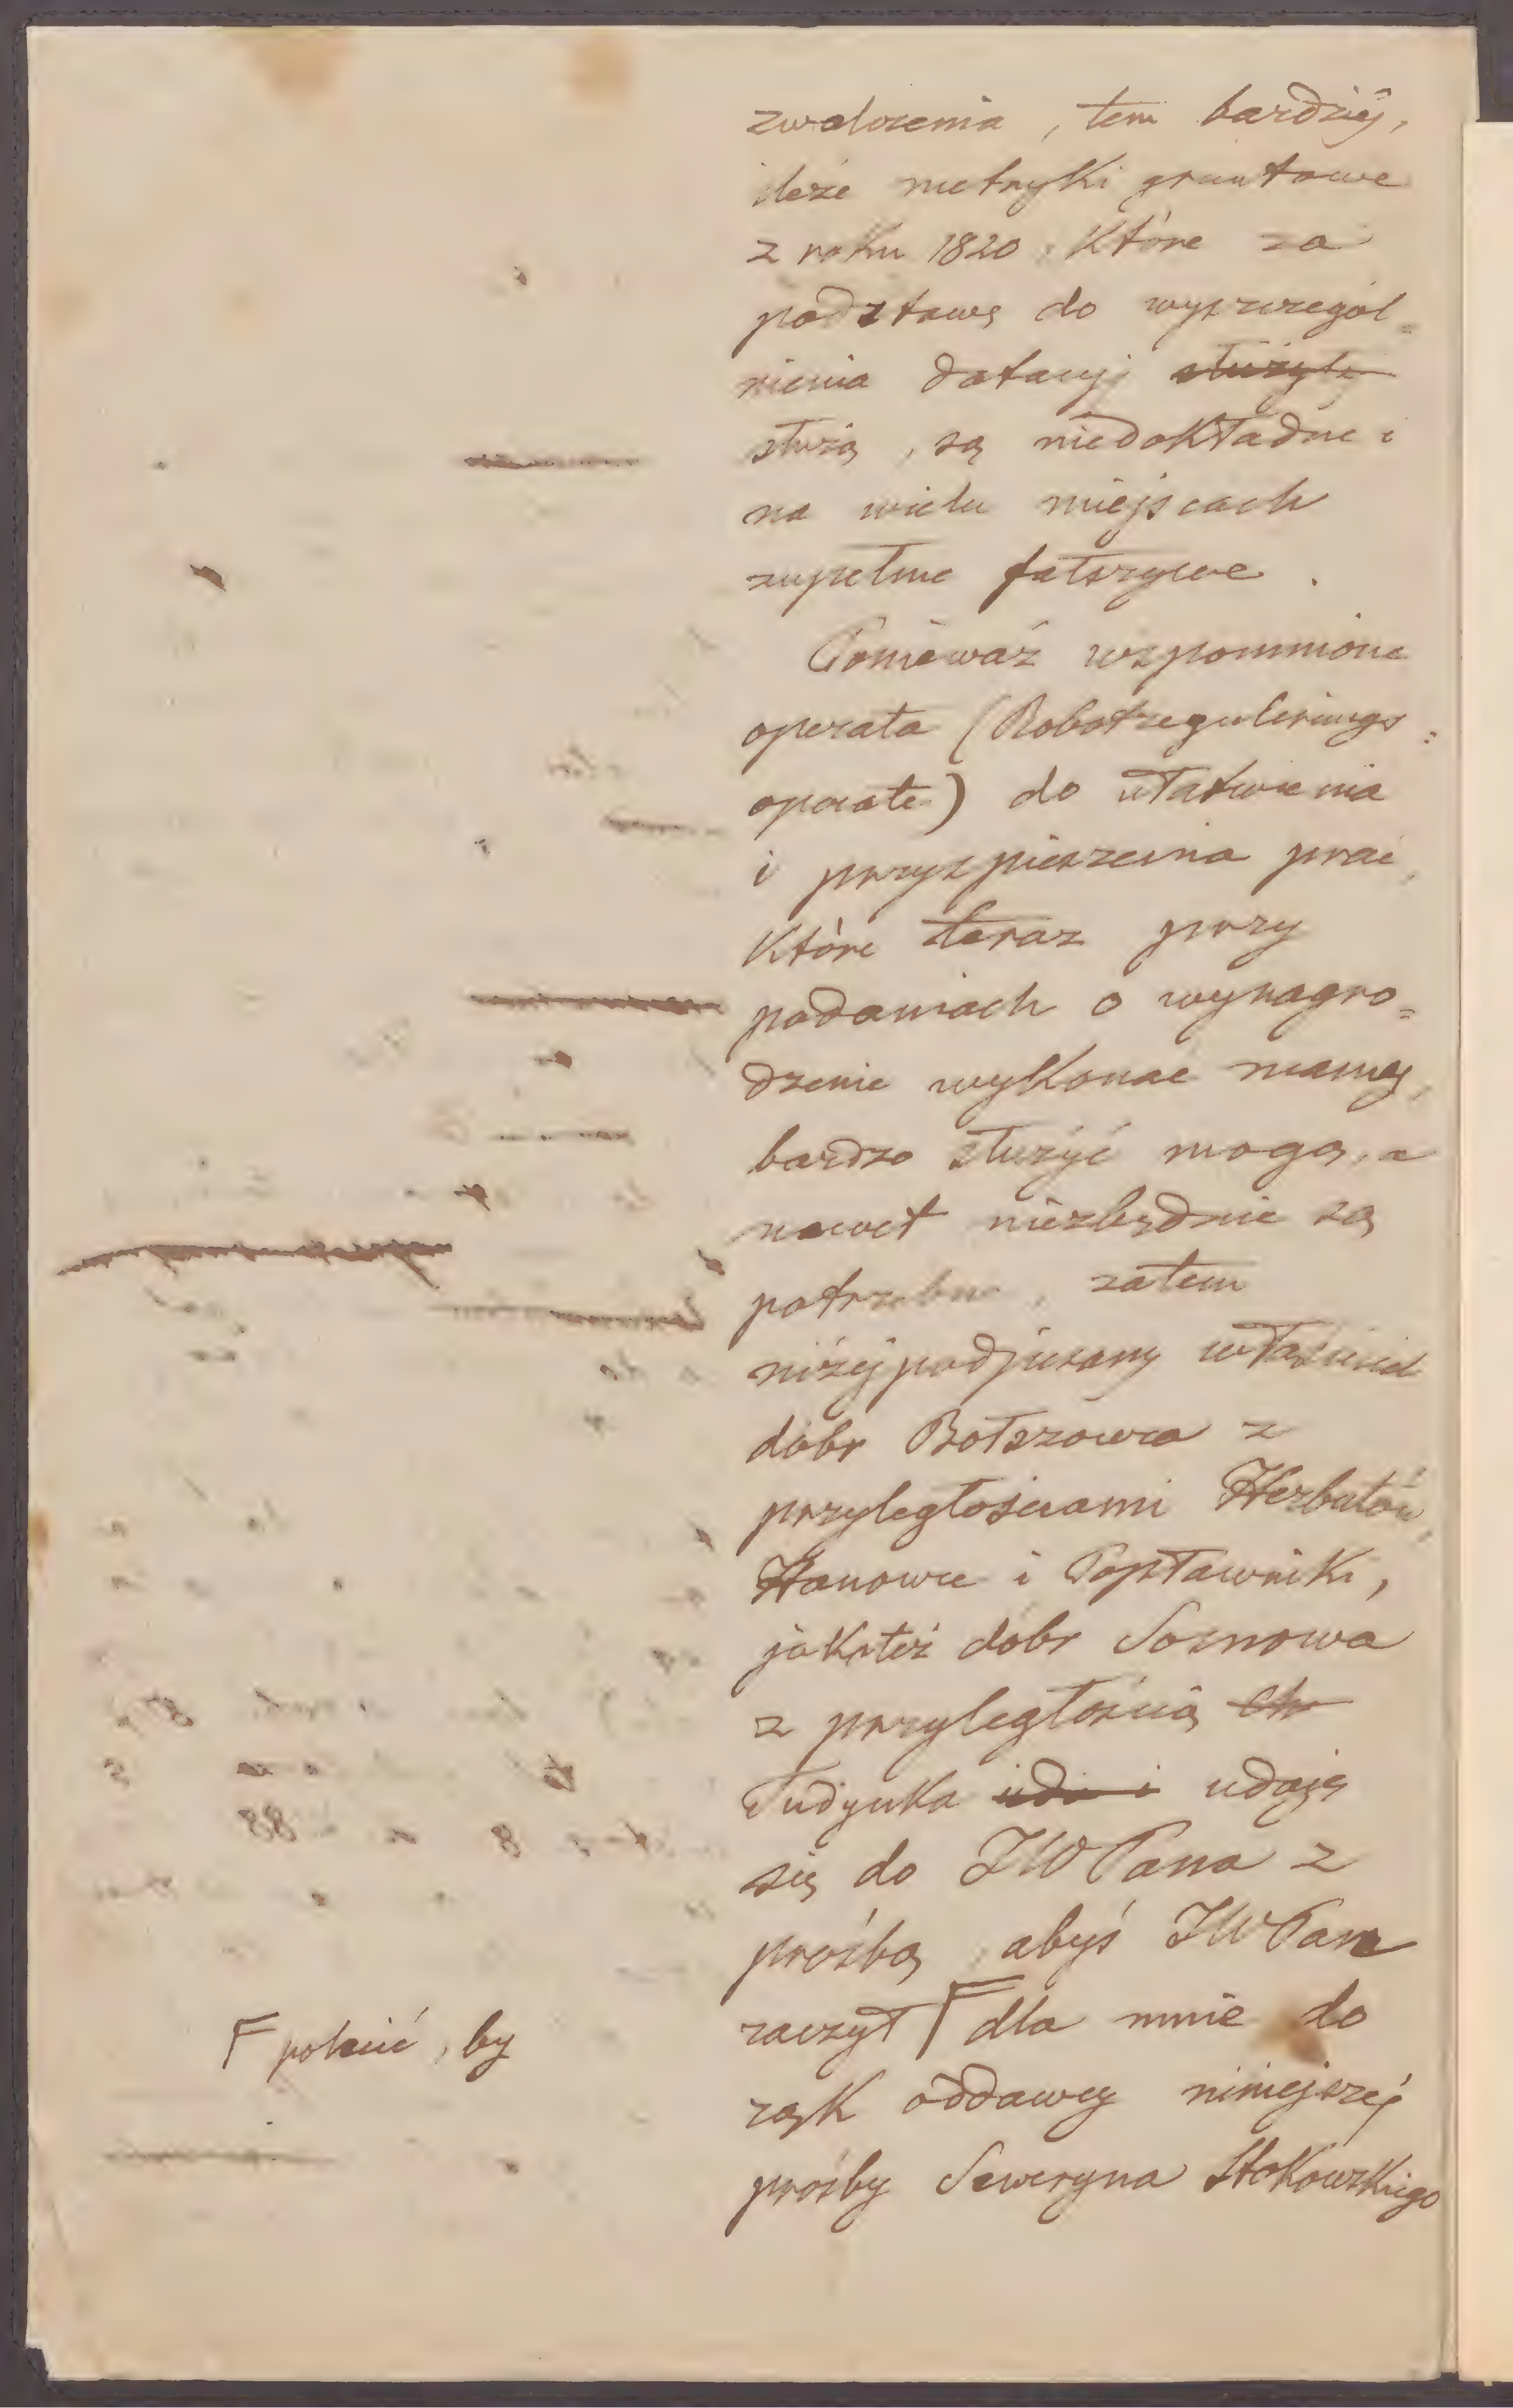 zwolnienia, tem bardziéj,
ileże metryki gruntowe
z roku 1820, które za
podstawę do wyszczegól=
nienia dotacyj służyły
służą, są niedokładne i
na wielu miejscach
zupełnie fałszywe.
Ponieważ wspomnione
operata (Robotregulirungs=
operate) do ułatwienia
i przyspieszenia prac,
które teraz przy
podaniach o wynagro=
dzenie wykonać mamy,
bardzo służyć mogą, a
nawet niezbędnie są
potrzebne, zatem
niżéj podpisany właściciel
dóbr Bołszowca z
przyległościami Herbutów,
Hanowce i Popławniki,
jakoteż dóbr Sosnowa
z przyległością Ch
Tudynka uda i udaję
się do JWPana z
prośbą, abyś JWPan
raczył Γ dla mnie do
rąk oddawcy niniejszéj
prośby Seweryna Stokowskiego
Γ polecić, by